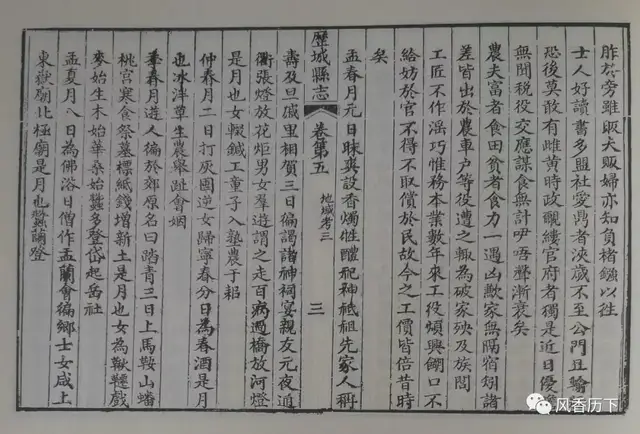 胙於旁雖販夫販婦亦知負楮鏹以往
士人好讀書多盟社愛鼎者浹歲不至公門且
恐後莫敢有雌黃時政醜縷官府者獨是近日優
無聞稅役交應謀食無計咿唔聲漸衰矣
農夫富者食田貧者食力一遇凶歉家無隔宿炊諸
差皆出於農車戶等役遭之輒為破家殃及族閭
工匠不作淫巧惟務本業數年來工役煩興餬口不
給妨於官不得不取償於民故今之工價皆倍昔時
矣
孟春月元日昧爽設香燭牲醴祀神祗祖先家人稱
壽及旦戚里相賀三日徧謁諸神祠宴親友元夜通
衢張燈放花炬男女羣遊謂之走百病過橋放河燈
是月也女輟鍼工童子入塾農于耜
仲春月二日打灰囤逆女歸寧春分日為春酒是月
也冰泮草生農舉趾會姻
季春月遊人徧於郊原名曰踏青三日上馬鞍山蟠
桃宮寒食祭墓標紙錢增新土是月也女為鞦韆戲
麥始生木始華桑始蠶多登岱起岳社
孟夏月八日為佛浴日僧作盂蘭會徧鄉士女咸上
東嶽廟北極廟是月也蠶繭登
歷城縣志
卷第五
地域考三
三
风香历下